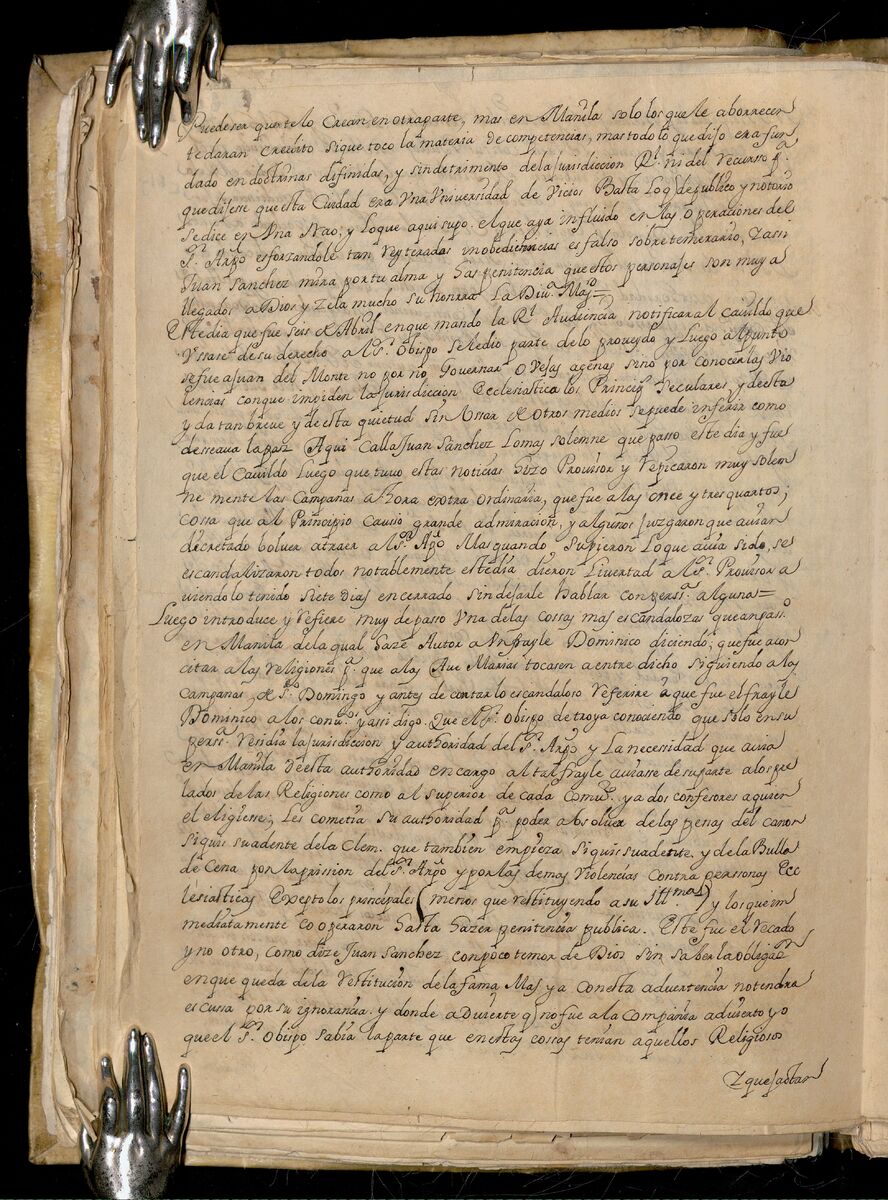 Puedeser que telo Crean en otra parte, mas en Manila solo los que le aborrecen
te daran credito si que toco la materia de competencias, mas todo lo que dijo era fun
dado en doctrinas difinidas, y sin detrimento de la jurisdiccion Rl. ni del recurso pa.
que dijesse que esta Ciudad era Vna Vniversidad de Vicios Basta Loq de publico y notorio
se dice en Vna Nao, y Loque aqui supo. el que aya influido en las operaciones del
Sr. Arpo esforzandole tan reyteradas inobediencias es falso sobre temerario, Zassi
Juan Sanchez mira por tu alma y has penitencia que estos personajes son muy a
llegados a Dios y Zela mucho su honrra La Diua. Magd.=
Este dia que fue seis de Abril en que mando la Rl. Audiencia notificar al cauildo que
Vssase de su derecho al Sr. Obispo se le dio parte de lo proveydo y Luego al punto
se fue a Juan del Monte no por no Governar Ovejas agenas sino por conocer las Vio
lencias con que impiden la jurisdiccion Ecclesiastica los Princips. Seculares, y de esta
yda tan breve y de esta quietud sin Vssar de otros medios se puede inferir como
desseaua la paz Aqui Calla Juan Sanchez Lo mas solemne que passo este dia y fue
que el Cauildo Luego que tuvo estas noticias hizo Provisor y repicaron muy solem
ne mente las Campanas a hora extra ordinaria, que fue a las once y tres quartos;
cossa que al Principio Causso grande admiracion, y algunos juzgaron que auian
decretado boluer a traer al Sr. Arpo Mas quando supieron Lo que auia sido, se
escandalizaron todos notablemente este dia dieron Livertad al Sr. Provisor a
viendolo tenido siete Dias encerrado sin dejarle hablar con perssa. alguna=
Luego introduce y refiere muy de paso Vna de las cossas mas escandalozas que an passdo.
en Manila de la qual haze Autor a Vn frayle Dominico diciendo; que fue a cor
citar a las religiones pa. que a las Aue Marias tocasen a entre dicho siguiendo a las
Campanas, de Sto. Domingo y antes de contar lo escandaloso referire a que fue el frayle
Dominico a los convtos. y assi digo. Que el Sr. Obispo de troya conociendo que solo en su
perssa. residia la jurisdiccion y authoridad del Sr. Arpo y La necessidad que auia
en Manila de esta authoridad encargo al tal frayle auisasse de su parte a los pre
lados de las Religiones como al superior de cada Comud. y a dos confesores a quien
el eligiesse, Les cometia su authoridad pa. poder absoluer de las penas del canon
siquis suadente de la Clem. que tambien empieza siquis suadente. y de la Bulla
de Cena por la prission del Sr. Arpo y por las demas Violencias contra personas Ecc
lesiasticas Exepto los principales (menos que restituyendo a su Illma.) y los que im
mediatamente cooperaron hasta hazer penitencia publica. Este fue el recado
y no otro, como dize Juan Sanchez con poco temor de Dios sin saber la obligaon
en que queda de la restitucion de la fama, Mas ya con esta aduertencia no tendra
escussa por su ignorancia. y donde aduierte q no fue a la Compañia aduierto yo
que el Sr. Obispo sabia la parte que en estas cossas tenian aquellos Religiosos
Z que jactan